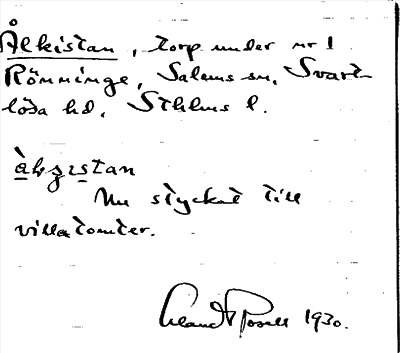 Ålkistan, torp under nr 1
Rönninge, Salems sn, Svart-
lösa hd, Sthlms l.
Nu styckat till
villatomter.
1930.